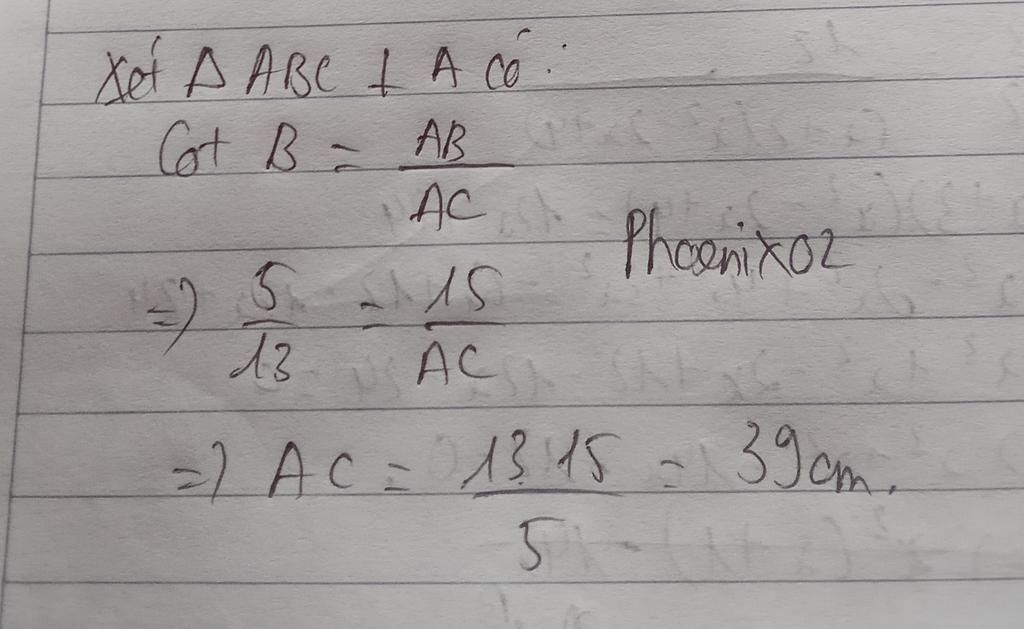 Xét Δ ABC ⊥ A có:
Cot B = AB / AC
Phoenix02
=) 5/13 = 15/AC
=) AC = 13.15 / 5 = 39cm.